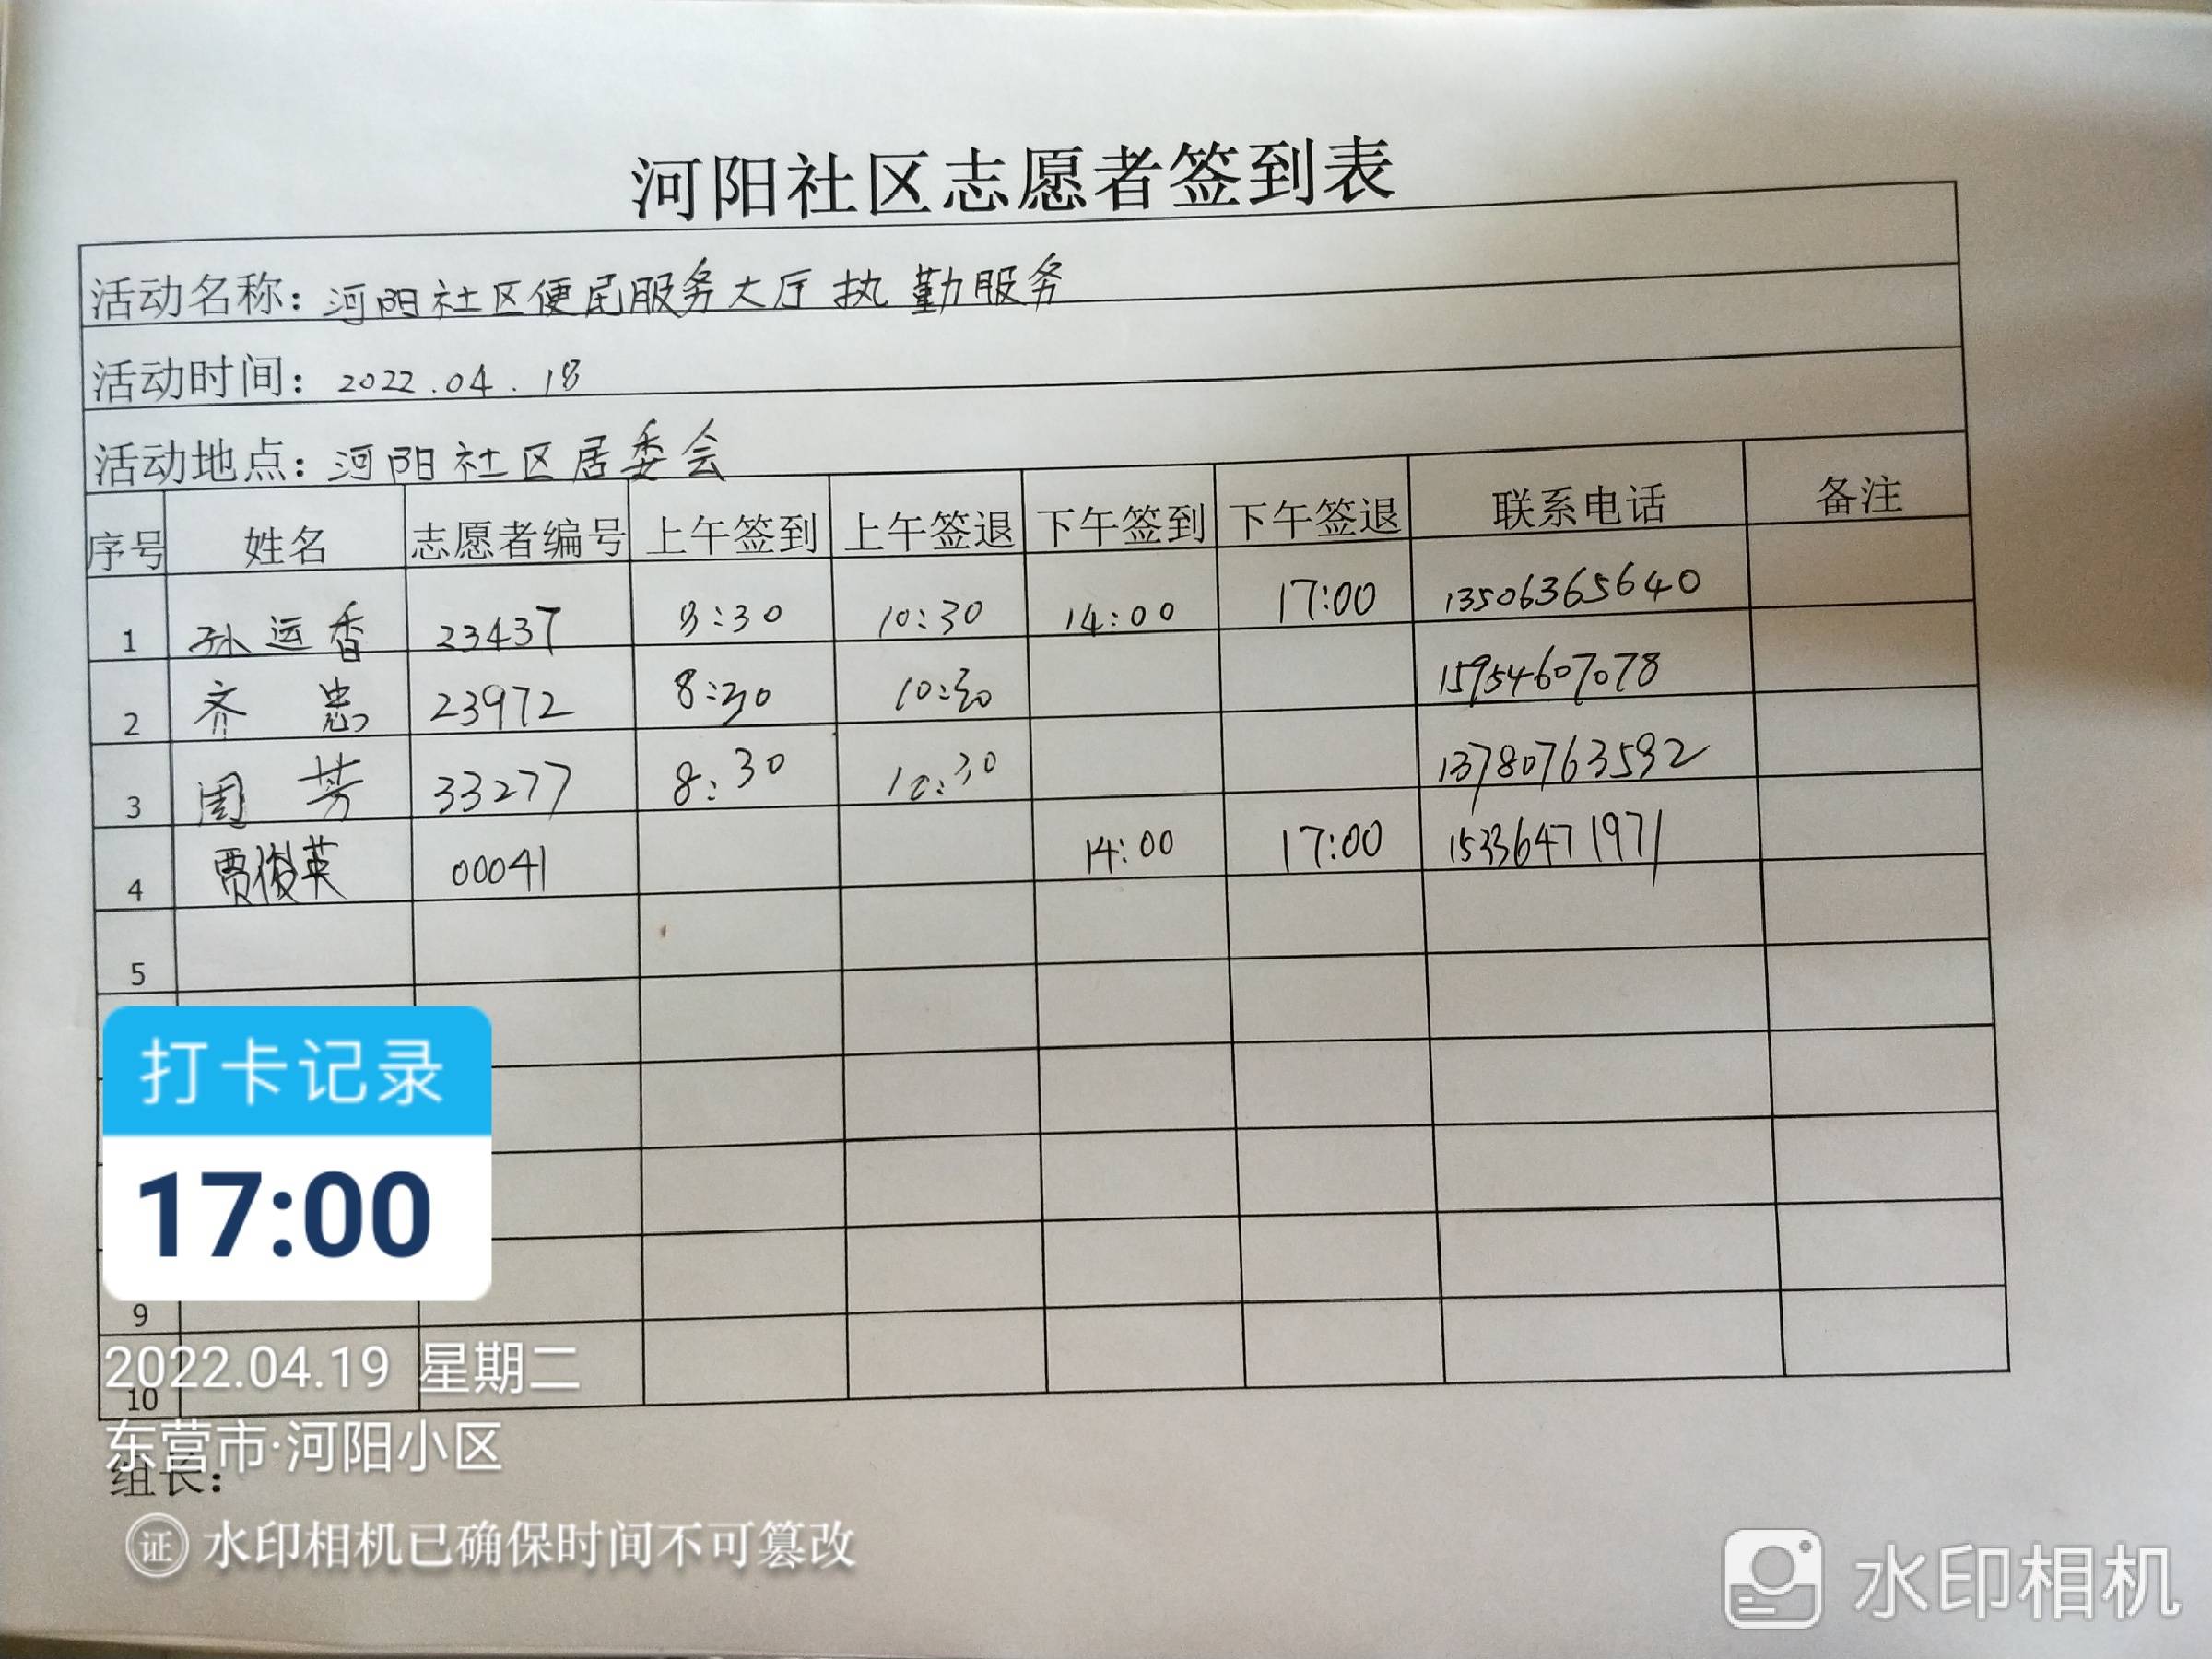 河阳社区志愿者签到表
活动名称：河阳社区便民服务大厅执勤服务
活动时间：2022.04.18
活动地点：河阳社区居委会
序号 姓名 志愿者编号 上午签到 上午签退 下午签到 下午签退 联系电话 备注
1 孙运香 23437 8:30 10:30 14:00 17:00 13506365640
2 齐忠 23972 8:30 10:30 15954607078
3 周芳 33277 8:30 10:30 13780763592
4 贾俊英 00041 14:00 17:00 15336471971
5
打卡记录
17:00
9
2022.04.19 星期二
10
东营市·河阳小区
组长：
证 水印相机已确保时间不可篡改
水印相机